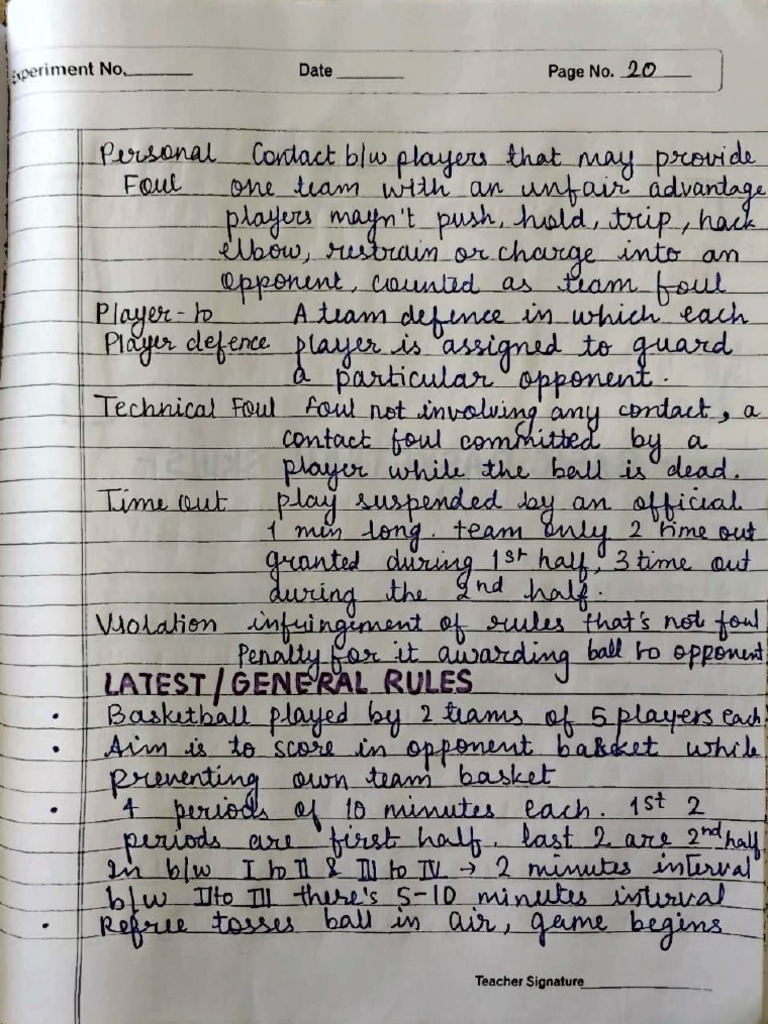 Experiment No. Date Page No. 20
Personal Contact b/w players that may provide
Foul one team with an unfair advantage
players mayn't push, hold, trip, hack
elbow, restrain or charge into an
opponent, counted as team foul
Player-to A team defence in which each
Player defence player is assigned to guard
a particular opponent.
Technical Foul foul not involving any contact, a
contact foul committed by a
player while the ball is dead.
Time out play suspended by an official
1 min long. team only 2 time out
granted during 1st half, 3 time out
during the 2nd half.
Violation infringement of rules that's not foul
Penalty for it awarding ball to opponent
LATEST/GENERAL RULES
• Basketball played by 2 teams of 5 players each
• Aim is to score in opponent basket while
preventing own team basket
• 4 periods of 10 minutes each. 1st 2
periods are first half. last 2 are 2nd half
In b/w I to II & III to IV → 2 minutes interval
b/w II to III there's 5-10 minutes interval
• Refree tosses ball in air, game begins
Teacher Signature